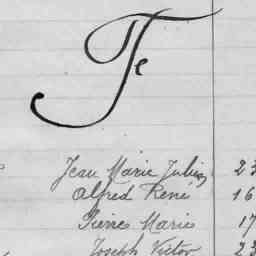 Fe
Jean Marie Julien 23
Alfred René 16
Pierre Marie 17
Joseph Victor 23